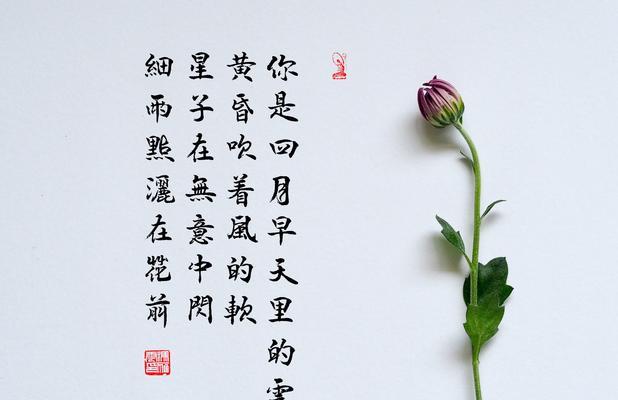 你是四月早天里的雲
黄昏吹着風的軟
星子在無意中閃
細雨點灑在花前